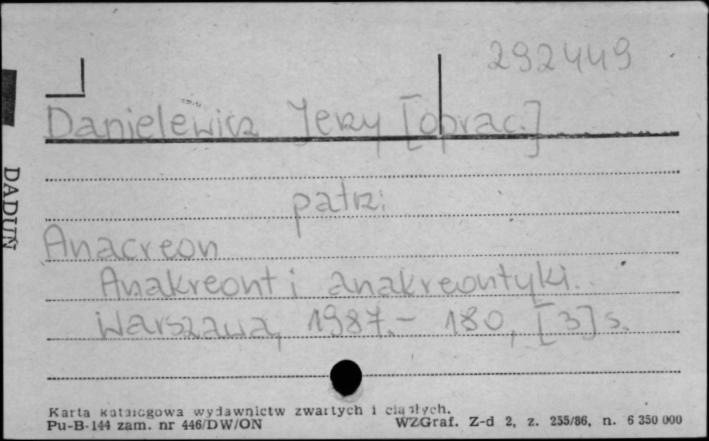 292449
Danielewicz Jerzy [oprac.]
patrz:
Anacreon
Anakreont i anakreontyki.
Warszawa, 1987.- 180, [3] s.
DADUŃ
Karta katalogowa wydawnictw zwartych i ciągłych.
Pu-B-144 zam. nr 446/DW/ON WZGraf. Z-d 2, z. 255/86, n. 6 350 000